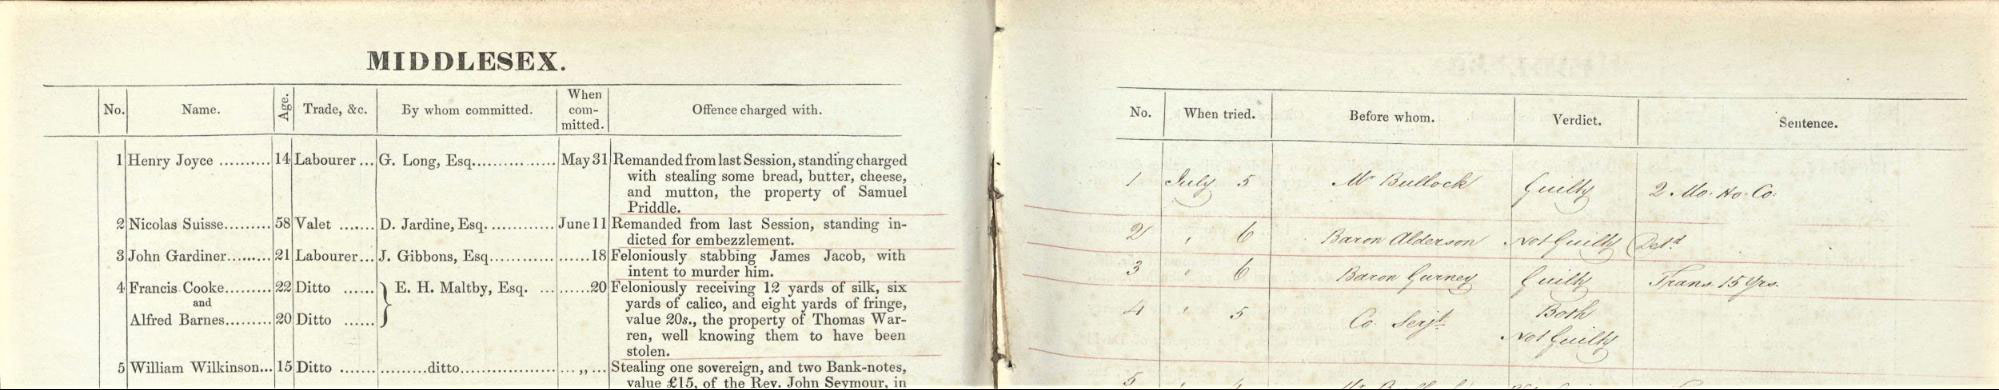 MIDDLESEX.
No. Name. Age. Trade, &c. By whom committed. When com- mitted. Offence charged with.
1 Henry Joyce .......... 14 Labourer ... G. Long, Esq............... May 31 Remanded from last Session, standing charged
with stealing some bread, butter, cheese,
and mutton, the property of Samuel
Priddle.
2 Nicolas Suisse......... 58 Valet ...... D. Jardine, Esq. ............ June 11 Remanded from last Session, standing in-
dicted for embezzlement.
3 John Gardiner......... 21 Labourer... J. Gibbons, Esq............ ......18 Feloniously stabbing James Jacob, with
intent to murder him.
4 Francis Cooke......... 22 Ditto ...... E. H. Maltby, Esq. ... ......20 Feloniously receiving 12 yards of silk, six
and
yards of calico, and eight yards of fringe,
Alfred Barnes......... 20 Ditto ......
value 20s., the property of Thomas War-
ren, well knowing them to have been
stolen.
5 William Wilkinson... 15 Ditto ....... .........ditto.................. ... ,, ... Stealing one sovereign, and two Bank-notes,
value £15, of the Rev. John Seymour, in
No. When tried. Before whom. Verdict. Sentence.
1 July 5 Mr Bullock Guilty 2 Mo. Ho. Co.
2 " 6 Baron Alderson Not Guilty Detd
3 " 6 Baron Gurney Guilty Trans. 15 Yrs.
4 " 5 Co. Serjt. Both
Not Guilty
5